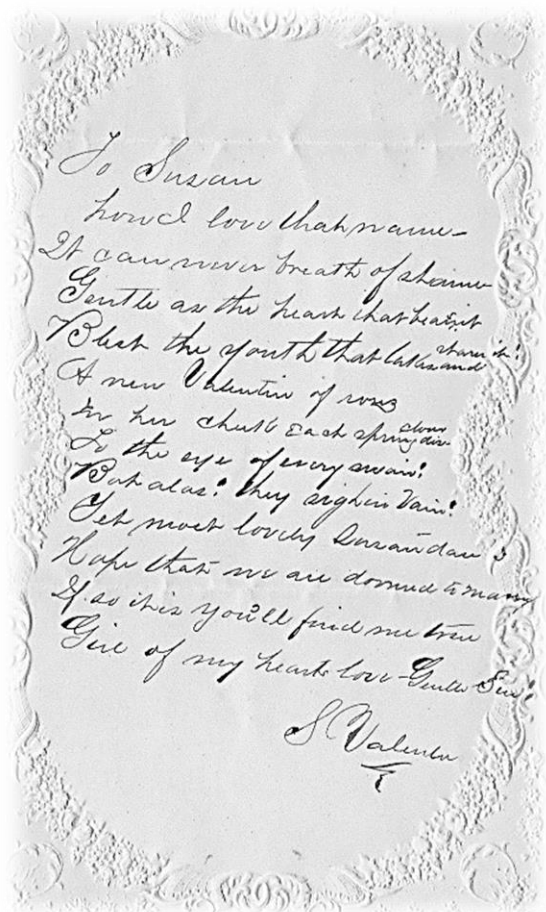 To Susan
how I love that name—
It can never breath of shame
Gentle as the heart that bears it
Blest the youth that takes and shares it!
A new Valentin of roses
In her cheek Each spring
To the eye of every swain!
But alas! they sigh in Vain!
Yet most lovely Susan dare I
Hope that we are doomed to marry
If so it is you'll find me true
Girl of my heart's love - Gentle Sue!
S Valentin